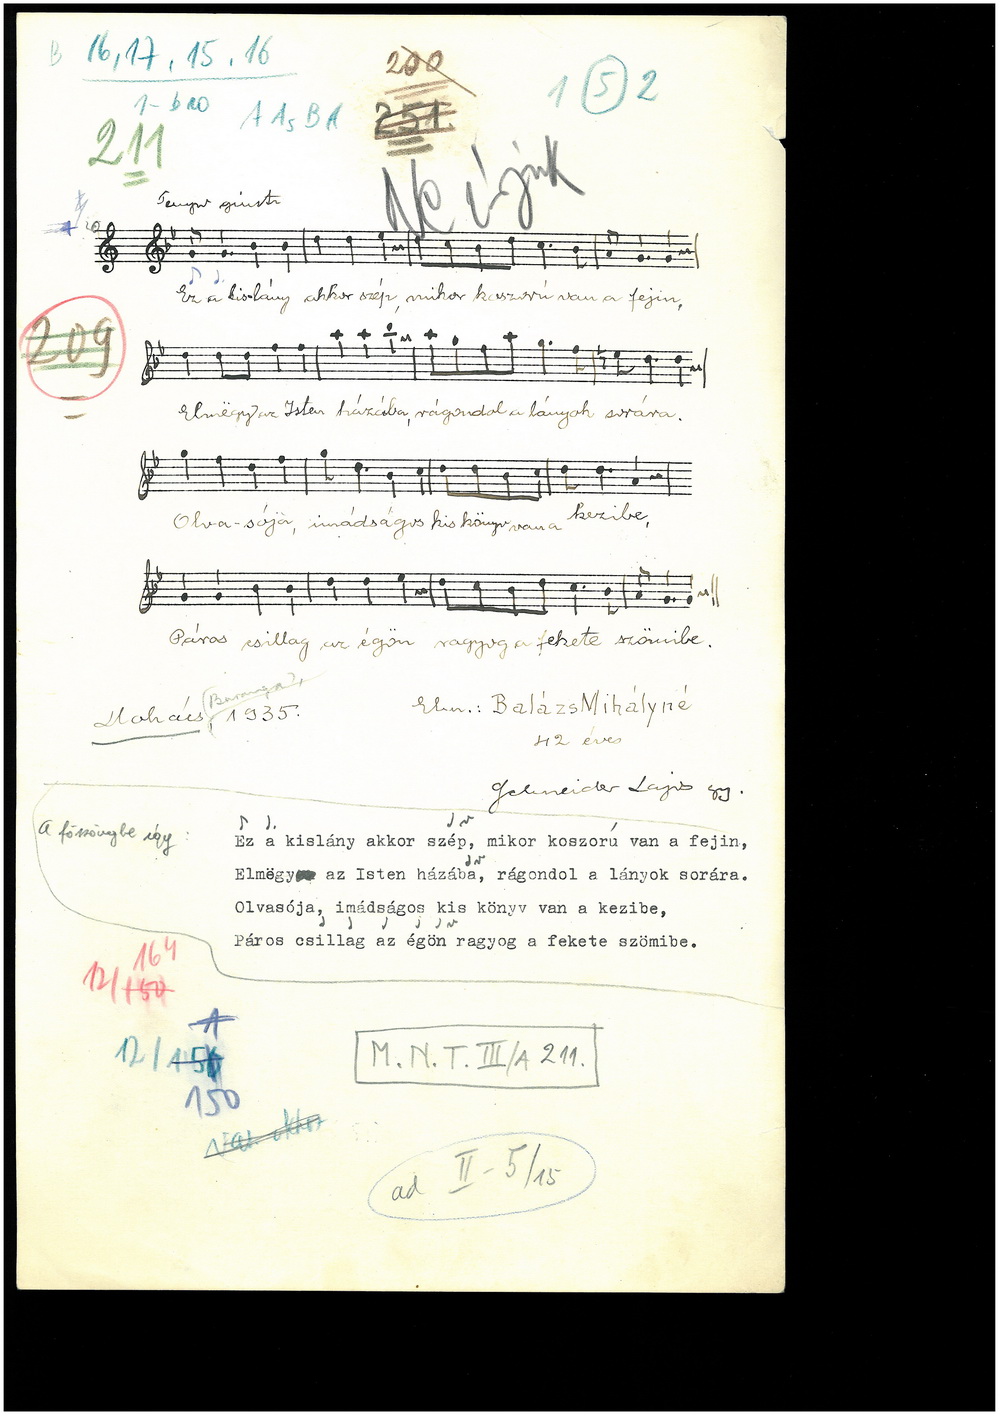 B 16, 17, 15, 16
200
1 5 2
A A5 B A
251
211
Tempo giusto
Ez a kislány akkor szép, mikor koszorú van a fejin,
209
Elmëgy az Isten házába, rágondol a lányok sorára.
Olva-sója, imádságos kis könyv van a kezibe,
Páros csillag az égön ragyog a fekete szömibe.
(Baranya),
Mohács, 1935.
Elm.: Balázs Mihályné
42 éves
Schneider Lajos gy.
A főszövegbe így:
Ez a kislány akkor szép, mikor koszorú van a fejin,
Elmëgy az Isten házába, rágondol a lányok sorára.
Olvasója, imádságos kis könyv van a kezibe,
Páros csillag az égön ragyog a fekete szömibe.
164
12/150
A
12/156
150
M.N.T. III/A 211.
ad II-5/15